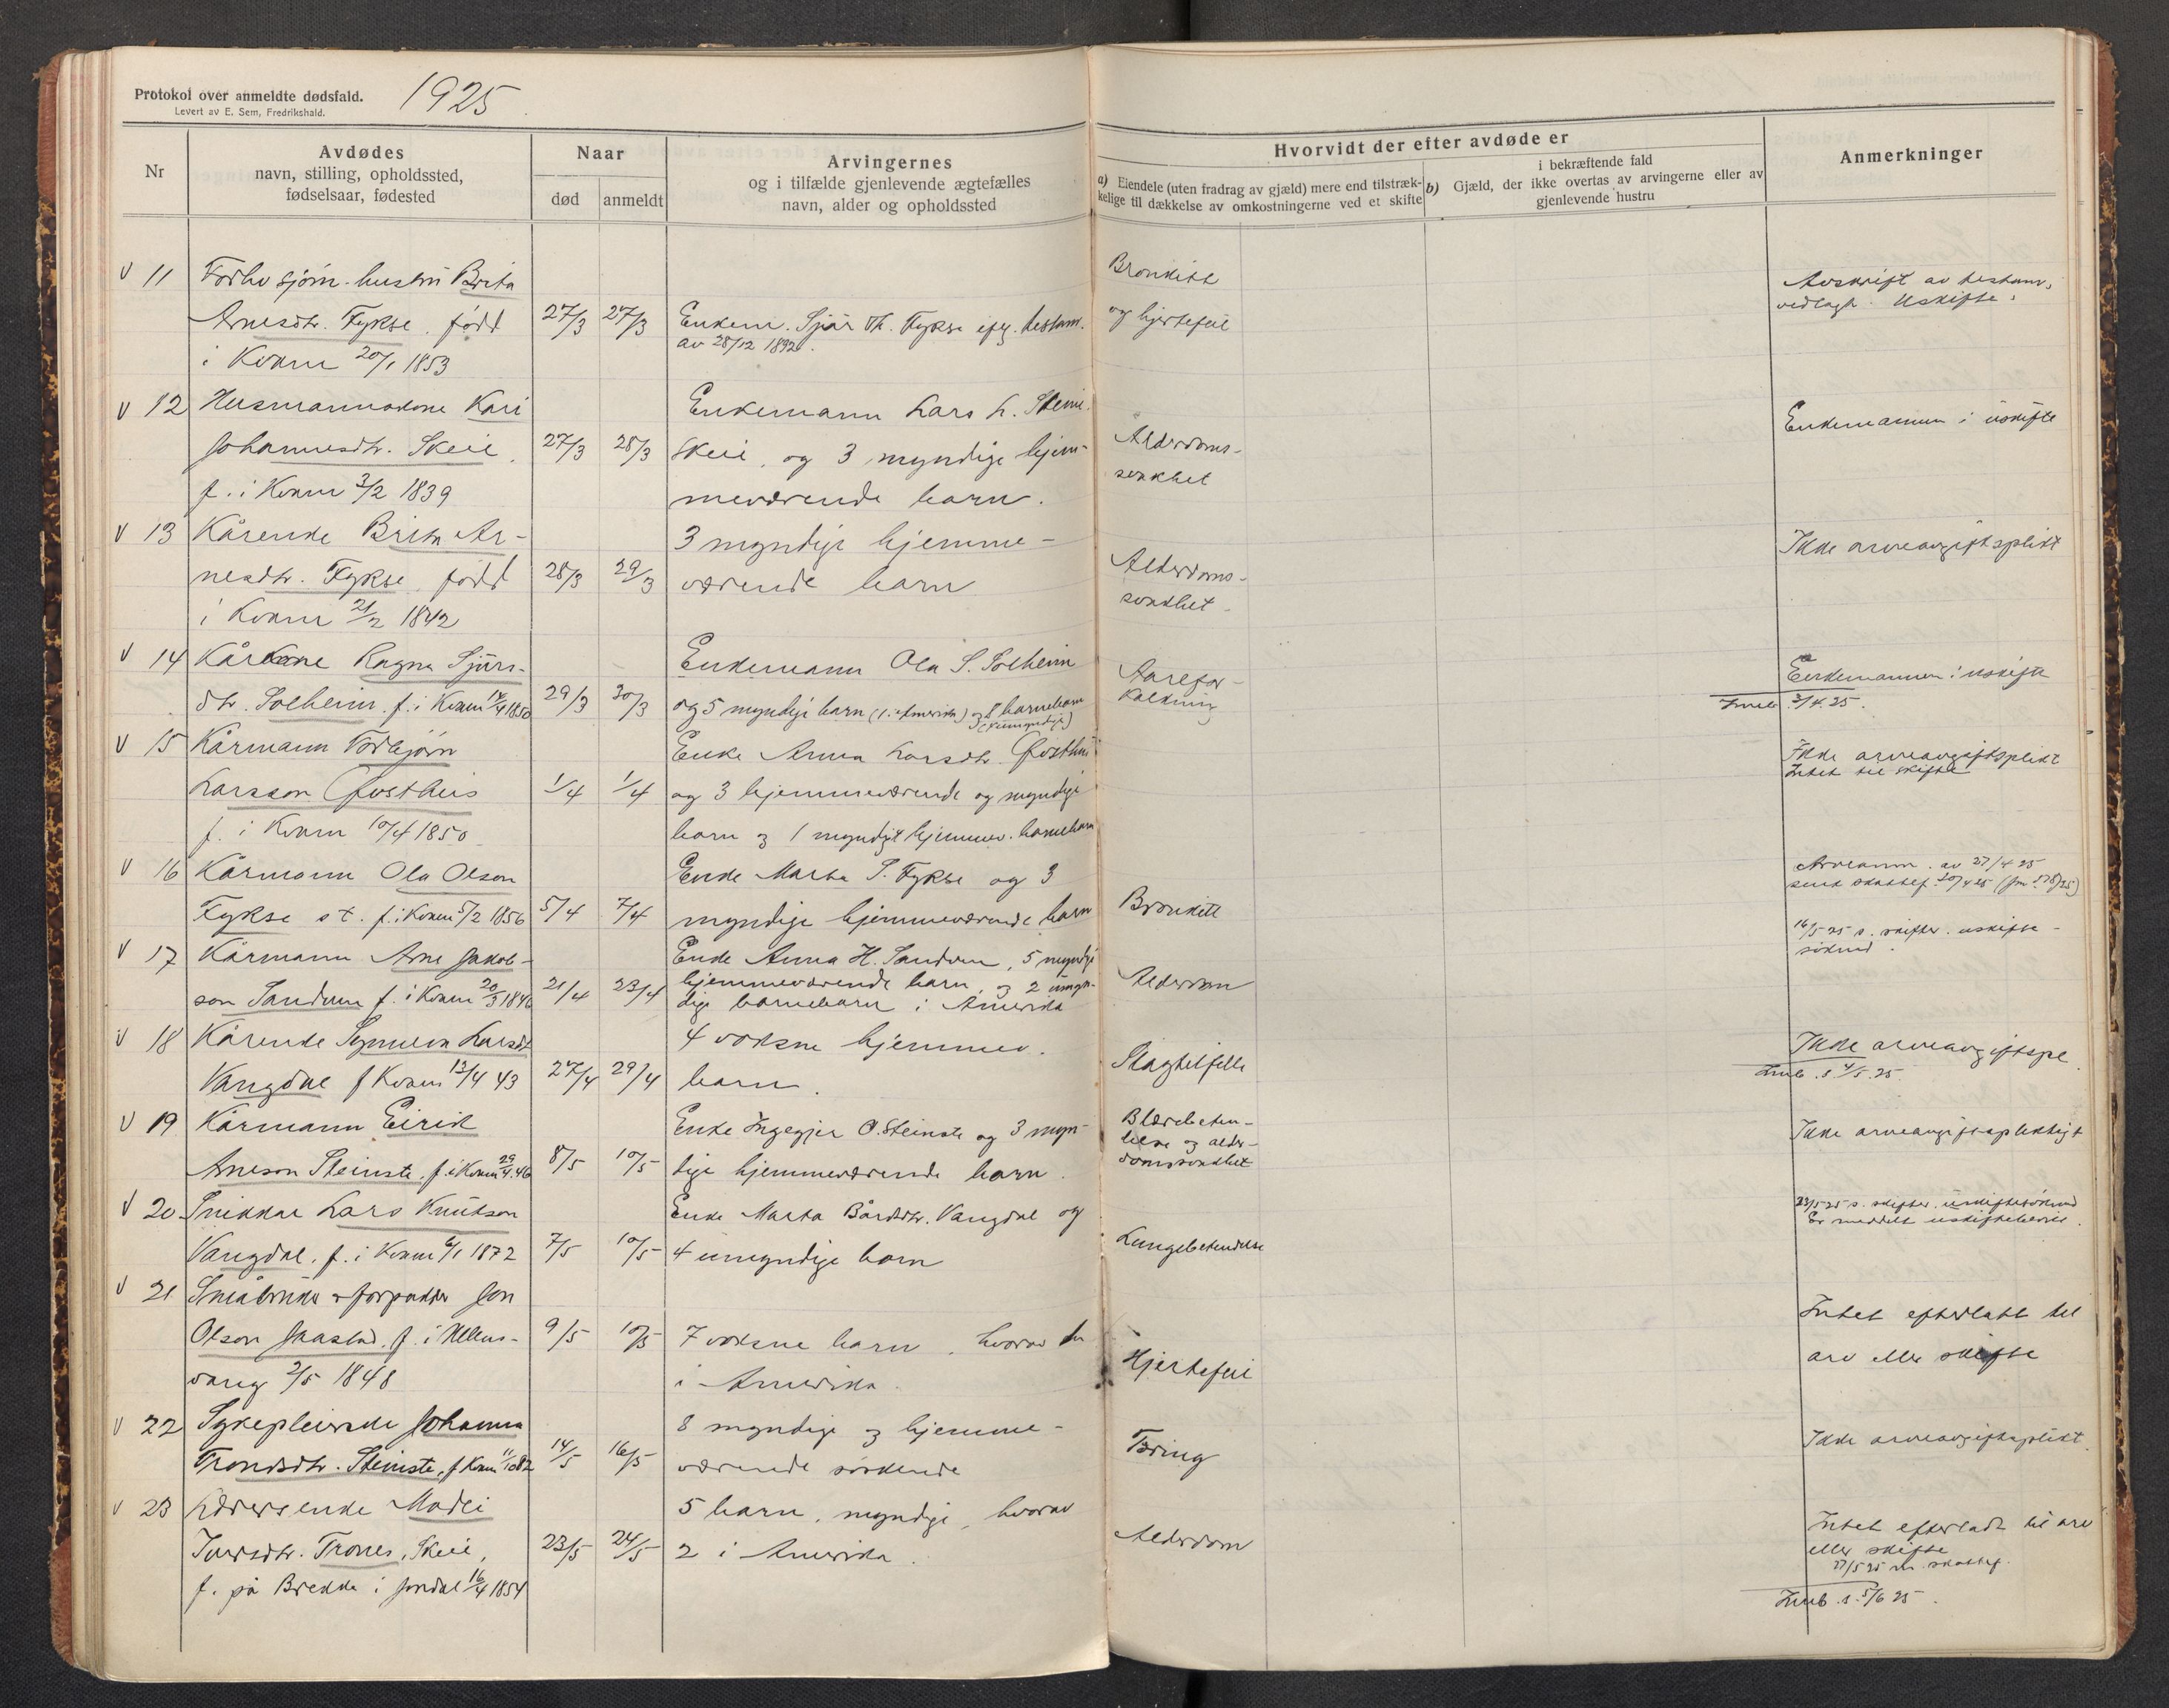 Protokol over anmeldte dødsfald.
Levert av E. Sem, Fredrikshald.
1925
Nr
Avdødes
navn, stilling, opholdssted,
fødselsaar, fødested
Naar
død
anmeldt
Arvingernes
og i tilfælde gjenlevende ægtefælles
navn, alder og opholdssted
Hvorvidt der efter avdøde er
a) Eiendele (uten fradrag av gjæld) mere end tilstræk-
kelige til dækkelse av omkostningerne ved et skifte
i bekræftende fald
b) Gjæld, der ikke overtas av arvingerne eller av
gjenlevende hustru
Anmerkninger
v 11
hustru Brita
Arnesdtr. Fykse. født
i Kvam 20/1 1853
27/3
27/3
Enkem. Sjur Th. Fykse ifg. testam.
av 28/12 1892.
Bronkitt
og hjertefeil
Avskrift av testam.
vedlagt. Uskifte.
v 12
Husmannskone Kari
Johannesdtr. Skeie
f. i Kvam 3/2 1839
27/3
28/3
Enkemann Lars L.
Skeie, og 3 myndige hjem-
meværende barn.
Alderdoms-
svakhet
Enkemannen i uskifte
v 13
Kårenke Brita Ar-
nesdtr. Fykse, født
i Kvam 21/2 1842
28/3
29/3
3 myndige hjemme-
værende barn
Alderdoms-
svakhet.
Ikke arveavgiftsplikt
v 14
Kårkone Ragna Sjurs-
dtr. Solheim. f. i Kvam 14/4 1850
29/3
30/3
Enkemann Ola S. Solheim
og 5 myndige barn (1 i Amerika) og 8 barnebarn
(umyndige)
Aarefor-
kalkning
Enkemannen i uskifte
Innb. 3/4.25.
v 15
Kårmann Torbjørn
Larsson Østhus
f. i Kvam 10/4 1850
1/4
1/4
Enke Anna Larsdtr. Østhus
og 3 hjemmeværende og myndige
barn og 1 myndigt hjemmev. barnebarn
Ikke arveavgiftsplikt
Intet til skifte
v 16
Kårmann Ola Olson
Fykse s t. f. i Kvam 5/2 1856
5/4
7/4
Enke Marta S. Fykse og 3
myndige hjemmeværende barn
Bronkitt
Arveanm. av 27/4 25
v 17
Kårmann Arne Jakob-
son Sandven f. i Kvam 20/3 1846
21/4
23/4
Enke Anna H. Sandven, 5 myndige
hjemmeværende barn, og 2 umyn-
dige barnebarn i Amerika
Alderdom
16/5 25 s. skifter. uskifte-
søknad.
v 18
Kårenke Synneva Larsdt
Vangdal f Kvam 13/4 43
27/4
29/4
4 voksne hjemmev.
barn.
Slagtilfelle
Ikke arveavgiftspl.
Innb. s 4/5.25.
v 19
Kårmann Eirik
Arneson Steinstø. f. i Kvam 29/4.46
8/5
10/5
Enke Ingegjer O. Steinstø og 3 myn-
dige hjemmeværende barn.
Blærebeten-
nelse og alder-
domssvakhet
Ikke arveavgiftspliktigt
v 20
Snikkar Lars Knutson
Vangdal. f. i Kvam 6/1 1872
7/5
10/5
Enke Marta Bårdsdtr. Vangdal og
4 umyndige barn
Lungebetendelse
23/5 25 s. skifter. uskiftesøknad
Er meddelt uskiftebevis.
v 21
Småbruker & forpakter Jon
Olson Jaastad. f. i Ullens-
vang 2/5 1848
9/5
10/5
7 voksne barn, hvorav
i Amerika.
Hjertefeil
Intet efterlatt til
arv eller skifte
v 22
Sykepleierske Johanna
Trondsdtr. Steinstø. f. Kvam 1882
14/5
16/5
8 myndige og hjemme-
værende søskende
Tæring
Ikke arveavgiftsplikt.
v 23
Lærers enke Madli
Iversdtr. Trones, Skeie,
f. på Brekke i Jondal 16/4 1854
23/5
24/5
5 barn, myndige, hvorav
2 i Amerika.
Alderdom
Intet efterladt til arv
eller skifte
27/5 25 m. skattef.
Innb. s. 5/6 25.